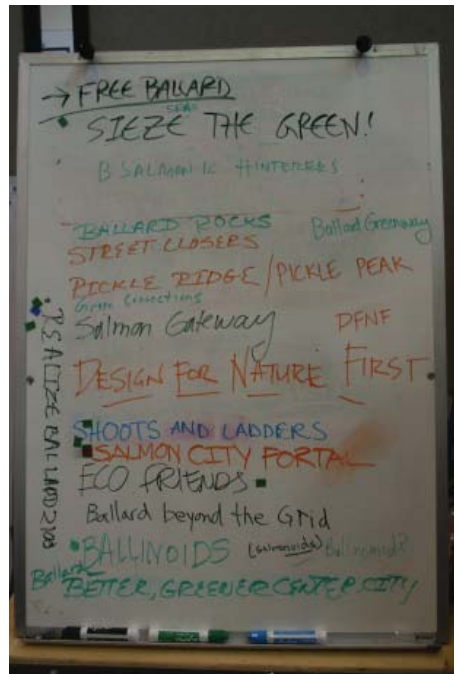 → FREE BALLARD
SIEZE THE GREEN!
B SALMON IC HINTERERS
BALLARD ROCKS
Ballard Greenway
STREET CLOSERS
PICKLE RIDGE/PICKLE PEAK
Green Connections
Salmon Gateway
DFNF
DESIGN FOR NATURE FIRST
SHOOTS AND LADDERS
SALMON CITY PORTAL
ECO FRIENDS
Ballard beyond the Grid
BALLINOIDS (salmonoids)
Ballard
BETTER, GREENER CENTER CITY
BALLARD 2100